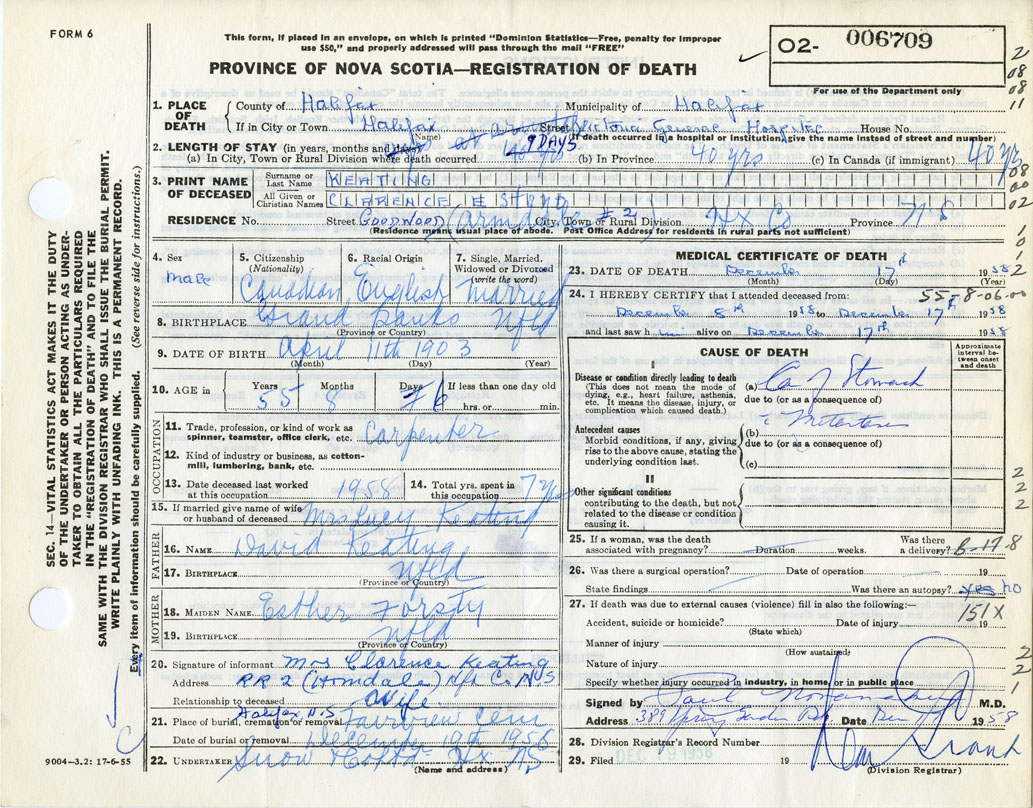 FORM 6
This form, if placed in an envelope, on which is printed "Dominion Statistics—Free, penalty for improper
use $50," and properly addressed will pass through the mail "FREE"
02- 006709
For use of the Department only
PROVINCE OF NOVA SCOTIA—REGISTRATION OF DEATH
1. PLACE OF DEATH
County of Halifax Municipality of Halifax
If in City or Town Halifax Street Victoria General Hospital House No.
(Name) (If death occurred in a hospital or institution, give the name instead of street and number)
2. LENGTH OF STAY (in years, months and days)
(a) In City, Town or Rural Division where death occurred 9 DAYS (b) In Province 40 yrs (c) In Canada (if immigrant) 40 yrs
3. PRINT NAME OF DECEASED
Surname or Last Name KEATING
All Given or Christian Names CLARENCE E
RESIDENCE No. Street GOODWOOD (Armdale #2 City, Town or Rural Division Hx Co Province N S
(Residence means usual place of abode. Post Office Address for residents in rural parts not sufficient)
4. Sex
male
5. Citizenship
(Nationality)
Canadian
6. Racial Origin
English
7. Single, Married,
Widowed or Divorced
(write the word)
Married
8. BIRTHPLACE Grand Banks Nfld
(Province or Country)
9. DATE OF BIRTH April 11th 1903
(Month) (Day) (Year)
10. AGE in Years Months Days If less than one day old
55 8 6 hrs. or min.
OCCUPATION
11. Trade, profession, or kind of work as
spinner, teamster, office clerk, etc. Carpenter
12. Kind of industry or business, as cotton-
mill, lumbering, bank, etc.
13. Date deceased last worked
at this occupation 1958
14. Total yrs. spent in
this occupation 7 yrs
15. If married give name of wife
or husband of deceased Mrs Lucy Keating
FATHER
16. NAME David Keating
17. BIRTHPLACE Nfld
(Province or Country)
MOTHER
18. MAIDEN NAME Esther Forsty
19. BIRTHPLACE Nfld
(Province or Country)
20. Signature of informant Mrs Clarence Keating
Address RR 2 (Armdale) Hfx Co N S
Relationship to deceased Wife
21. Place of burial, cremation or removal Halifax, N.S Fairview Cem
Date of burial or removal December 19th 1956
22. UNDERTAKER Snow Hx N S
(Name and address)
9004—3.2: 17-6-55
MEDICAL CERTIFICATE OF DEATH
23. DATE OF DEATH December 17th 1958
(Month) (Day)
24. I HEREBY CERTIFY that I attended deceased from: 558-06.00
December 8th 1958 to December 17th 1958
and last saw him alive on December 17th 1958
CAUSE OF DEATH
Approximate interval between onset and death
I
Disease or condition directly leading to death
(This does not mean the mode of
dying, e.g., heart failure, asthenia,
etc. It means the disease, injury, or
complication which caused death.)
(a) Ca of Stomach
due to (or as a consequence of)
Antecedent causes
Morbid conditions, if any, giving
rise to the above cause, stating the
underlying condition last.
(b)
due to (or as a consequence of)
(c)
II
Other significant conditions
contributing to the death, but not
related to the disease or condition
causing it.
25. If a woman, was the death
associated with pregnancy? Duration weeks. Was there
a delivery? B-17.8
26. Was there a surgical operation? Date of operation 19
State findings Was there an autopsy? yes no
27. If death was due to external causes (violence) fill in also the following:—
151X
Accident, suicide or homicide? Date of injury 19
(State which)
Manner of injury
(How sustained)
Nature of injury
Specify whether injury occurred in industry, in home, or in public place
Signed by Paul M.D.
Address 389 Spring Garden Rd. Date Dec 1958
28. Division Registrar's Record Number
29. Filed DEC 19 1958
(Division Registrar)
SEC. 14—VITAL STATISTICS ACT MAKES IT THE DUTY
OF THE UNDERTAKER OR PERSON ACTING AS UNDER-
TAKER TO OBTAIN ALL THE PARTICULARS REQUIRED
IN THE "REGISTRATION OF DEATH" AND TO FILE THE
SAME WITH THE DIVISION REGISTRAR WHO SHALL ISSUE THE BURIAL PERMIT.
WRITE PLAINLY WITH UNFADING INK. THIS IS A PERMANENT RECORD.
Every item of information should be carefully supplied. (See reverse side for instructions.)